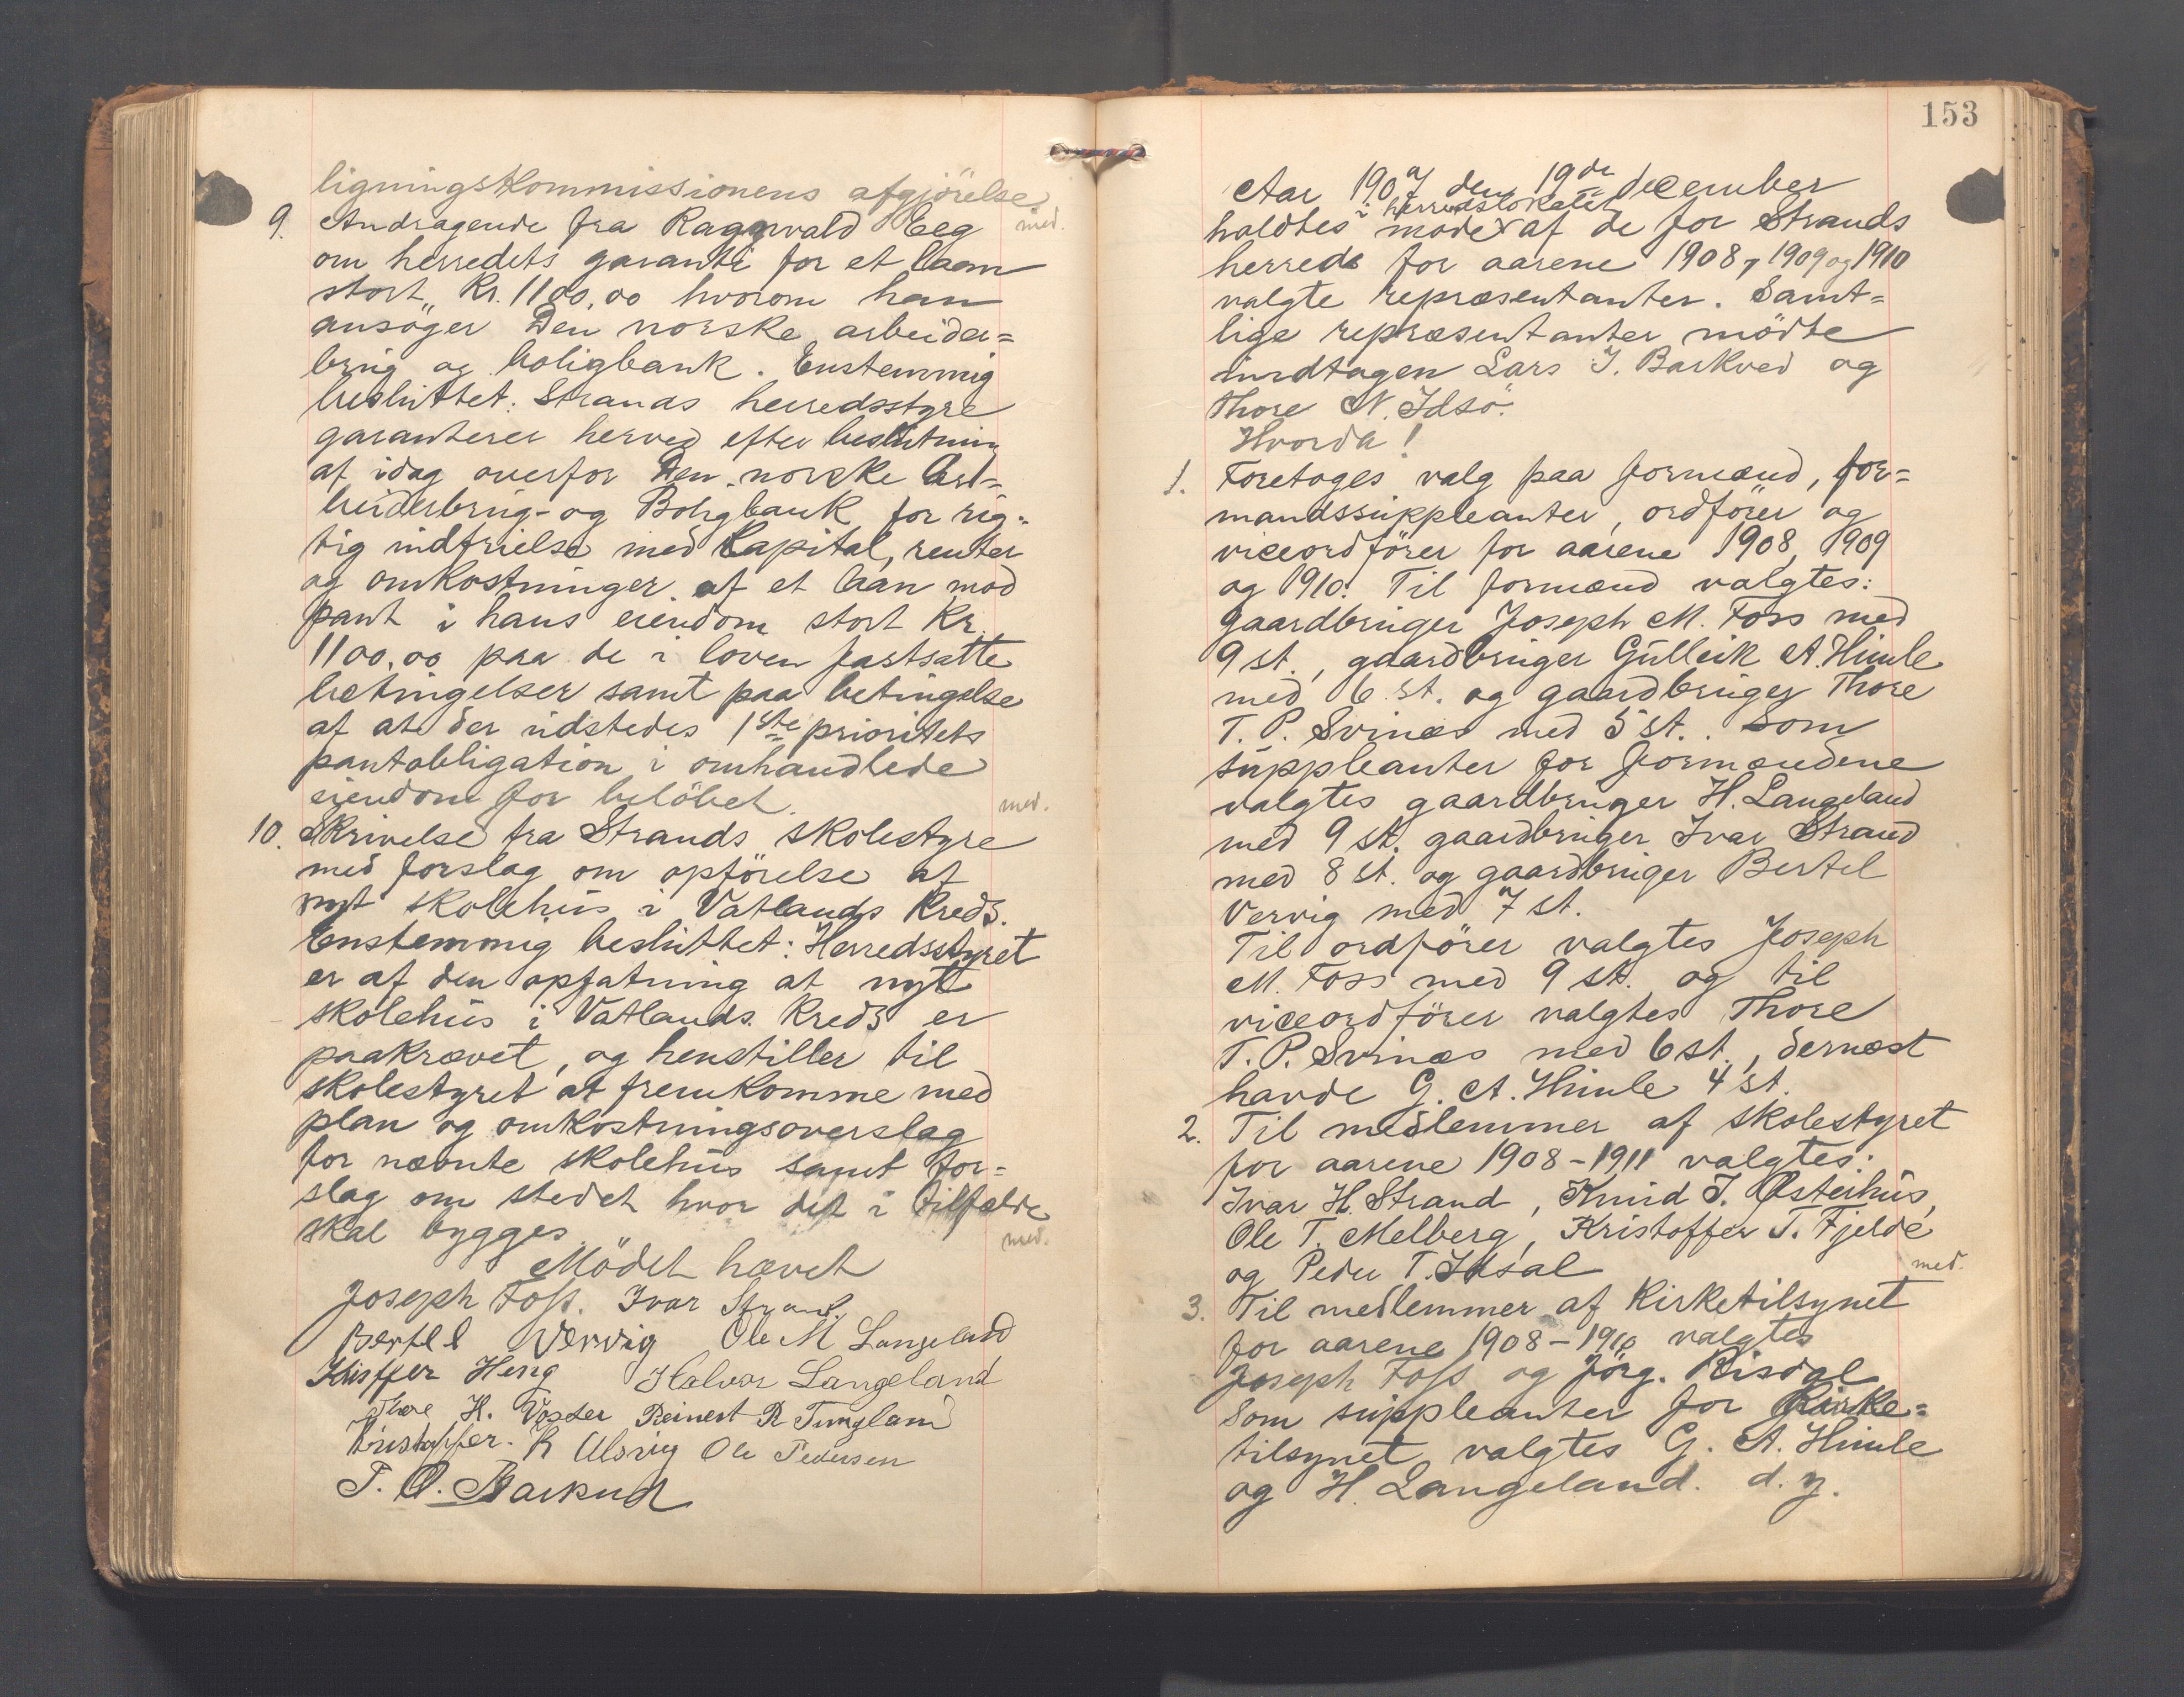 ligningskommissionens afgjörelse
9. Andragende fra Ragnvald Eeg med.
om herredets garanti for et laan
stort Kr. 1100,00 hvorom han
ansöger Den norske arbeider=
brug og boligbank. Enstemmig
besluttet: Strands herredsstyre
garanterer herved efter beslutning
af idag overfor Den norske Ar-
beiderbrug- og Boligbank for rig-
tig indfrielse med Kapital, renter
og omkostninger af et laan mod
pant i hans eiendom stort Kr.
1100,00 paa de i loven fastsatte
betingelser samt paa betingelse
af at der udstedes 1ste prioritets
pantobligation i omhandlede
eiendom for belöbet. med.
10. Skrivelse fra Strands skolestyre
med forslag om opförelse af
nyt skolehus i Vatlands Kreds.
Enstemmig besluttet: Herredsstyret
er af den opfatning at nyt
skolehus i Vatlands Kreds er
paakrævet, og henstiller til
skolestyret at fremkomme med
plan og omkostningsoverslag
for nævnte skolehus samt for=
slag om stedet hvor det i tilfælde
skal bygges. med.
Mödet hævet
Joseph Foss. Ivar Strand.
Bertel Vervig Ole M Langeland
Heng Halvor Langeland
Thore H. Reinert R Tungland
Kristoffer. R Alsvig Ole Pedersen
T. O. Barkved
153
Aar 1907 den 19de december
i herredslokalet
holdtes möde af de for Strands
herred for aarene 1908, 1909 og 1910
valgte repræsentanter. Samt=
lige repræsentanter mödte
undtagen Lars J. Barkved og
Thore N. Idsö.
Hvorda!
1. Foretoges valg paa formænd, for=
mandssuppleanter, ordförer og
viceordförer for aarene 1908, 1909
og 1910. Til formænd valgtes:
gaardbruger Joseph M. Foss med
9 st., gaardbruger Gulleik A. Himle
med 6 st. og gaardbruger Thore
T. P. Svinæs med 5 st. Som
suppleanter for formændene
valgtes gaardbruger H. Langeland
med 9 st. gaardbruger Ivar Strand
med 8 st. og gaardbruger Bertel
Vervig med 7 st.
Til ordförer valgtes Joseph
M. Foss med 9 st. og til
viceordförer valgtes Thore
T. P. Svinæs med 6 st., dernæst
havde G. A. Himle 4 st.
2. Til medlemmer af skolestyret
for aarene 1908-1911 valgtes:
Ivar H. Strand, Knud J. Østerhus,
Ole T. Melberg, Kristoffer T. Fjelde
og Peder T. Idsal med.
3. Til medlemmer af Kirketilsynet
for aarene 1908-1910 valgtes
Joseph Foss og Jörg. Risdal
Som suppleanter for Kirke=
tilsynet valgtes G. A. Himle
og H. Langeland. d. y.